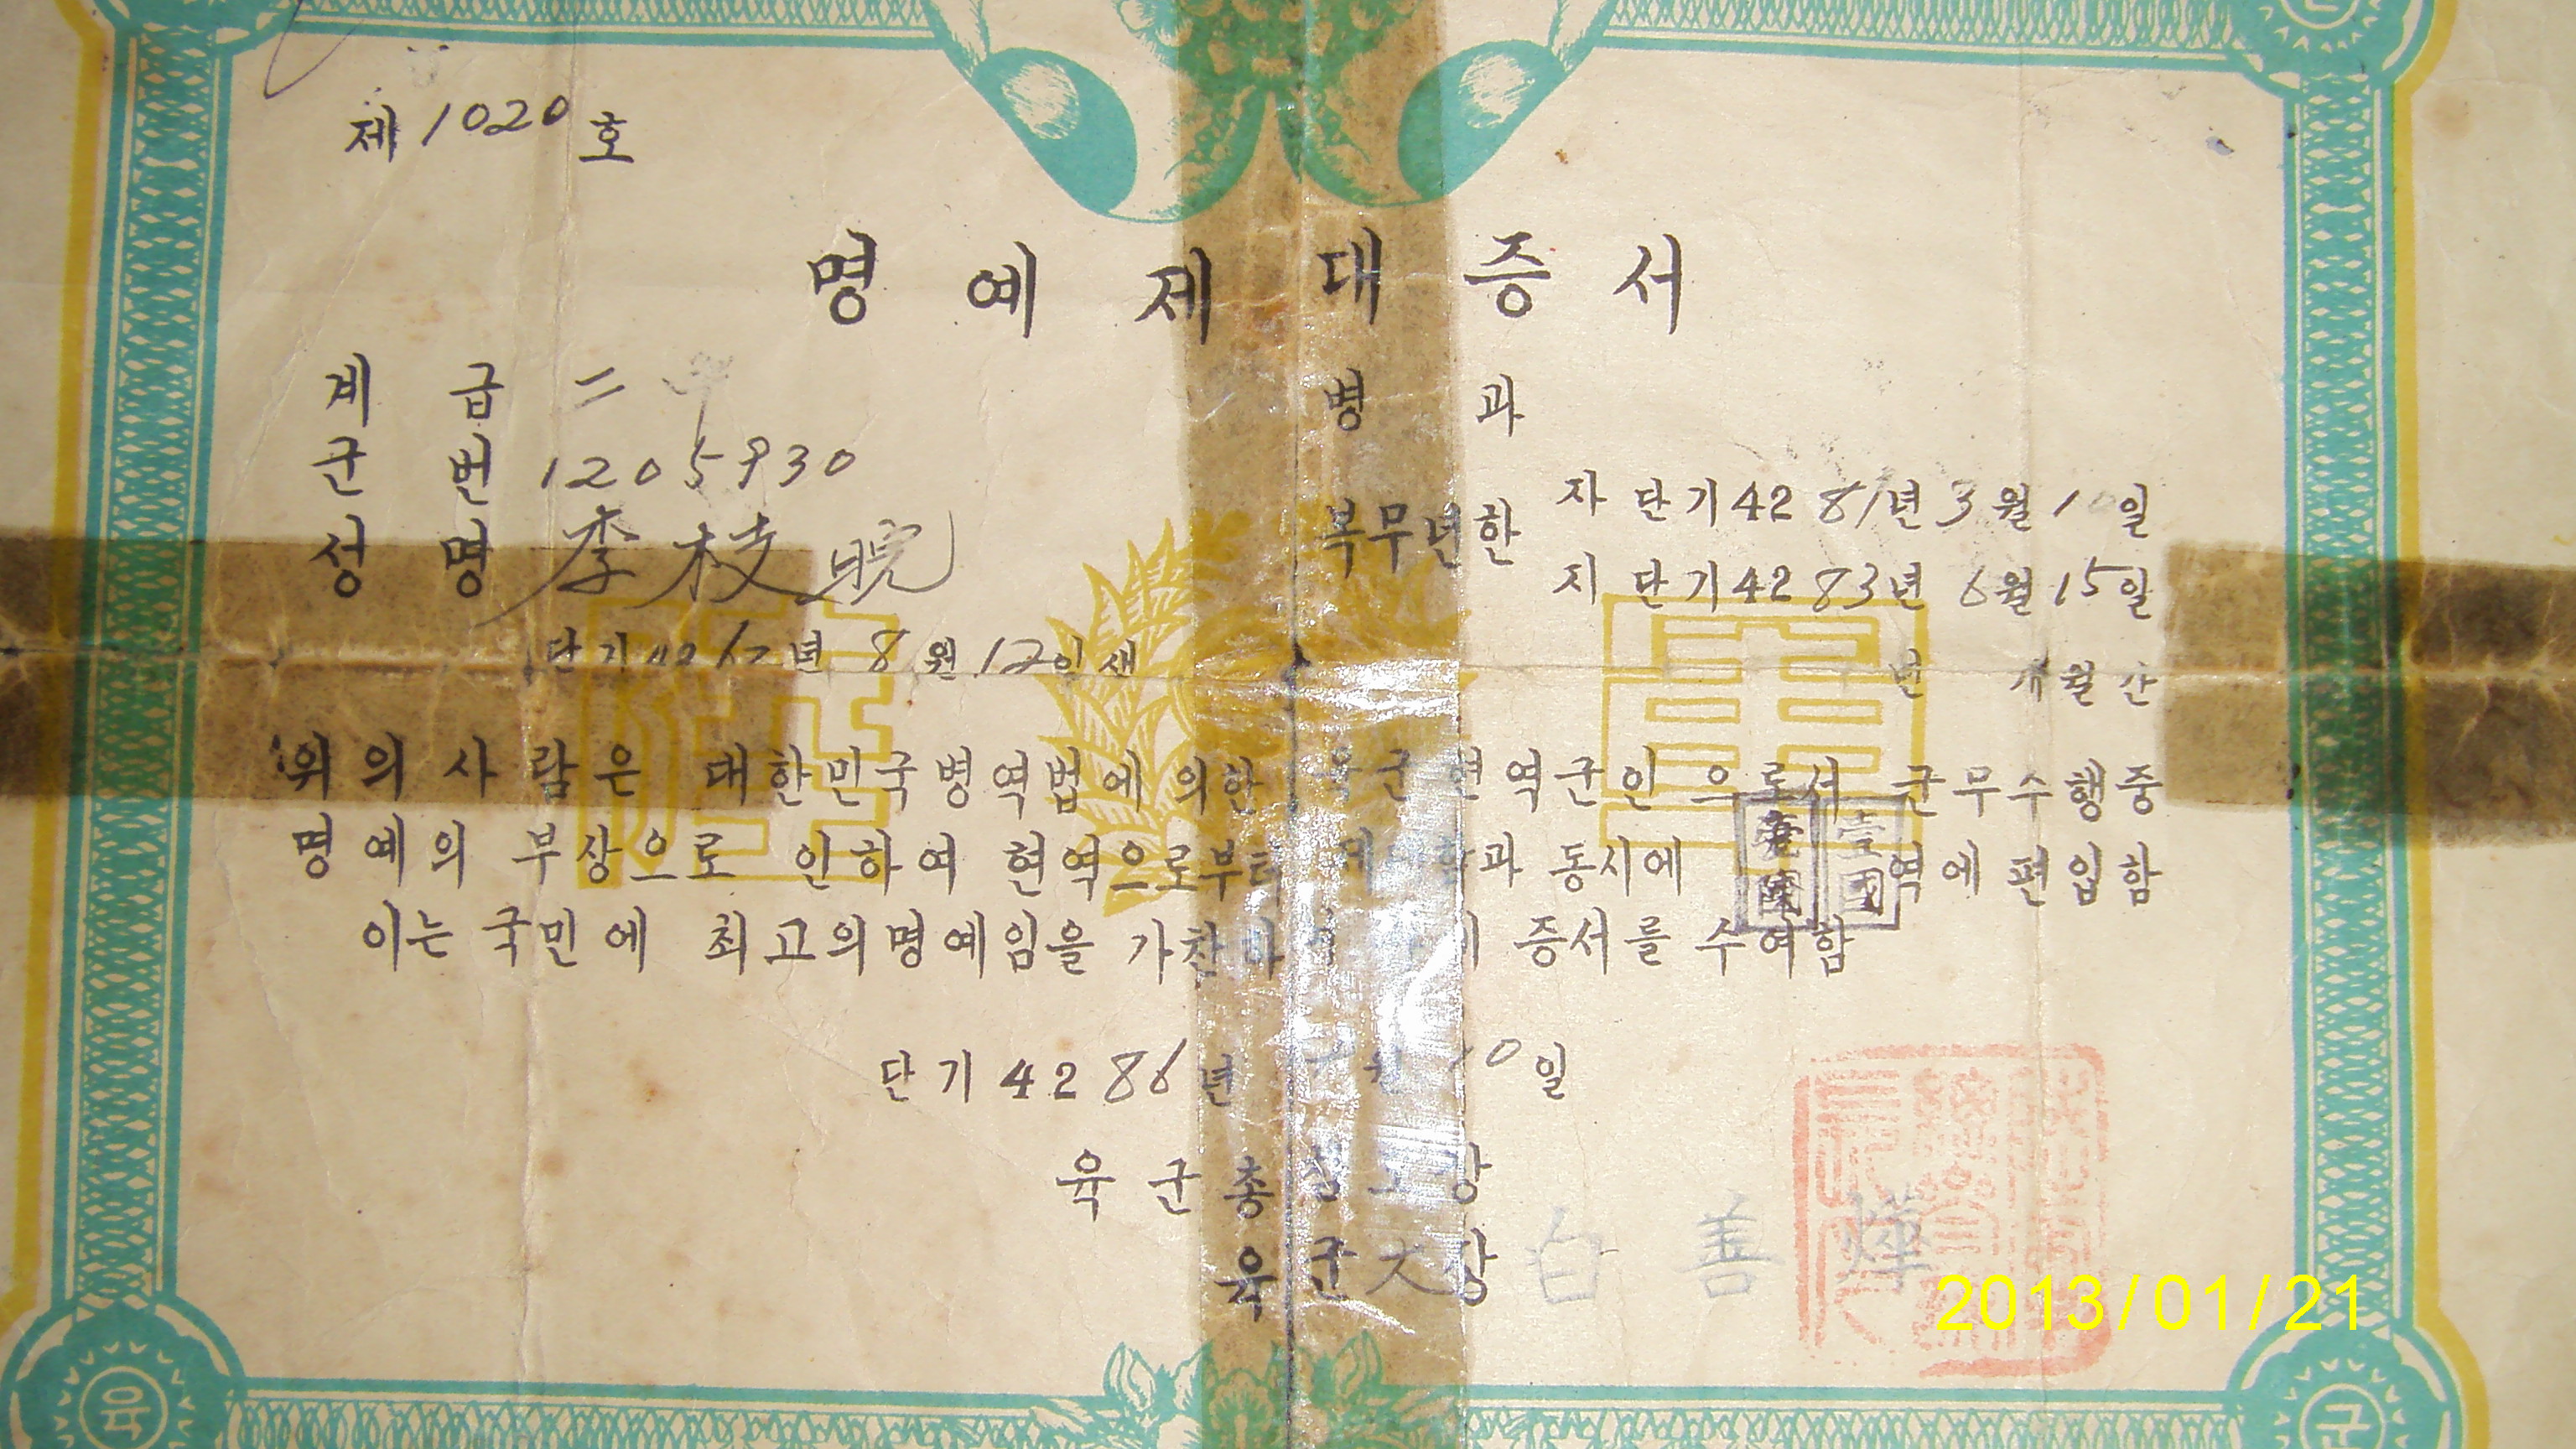 제 1020 호
명예제대증서
계급 二
군번 1205930
성명 李枝晥
단기 년 8월 12일생
병과
복무년한
자 단기 4281년 3월 1 일
지 단기 4283년 6월 15일
년 개월간
위의 사람은 대한민국병역법에 의한 육군현역군인으로서 군무수행중
명예의 부상으로 인하여 현역으로부터 과 동시에 역에 편입함
이는 국민에 최고의명예임을 가찬하 증서를 수여함
단기 4286년 월 일
육군총 장
육군大장 白善燁
육
군
2013/01/21